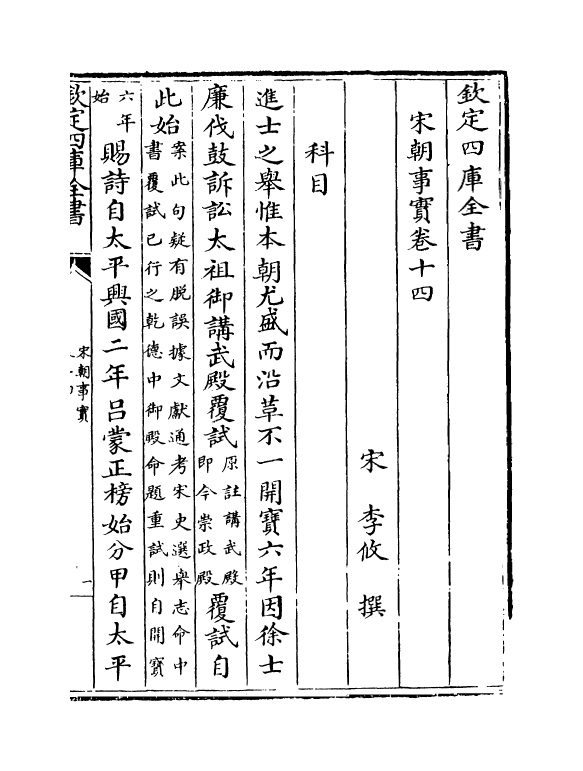 欽定四庫全書
宋朝事實卷十四
宋 李攸 撰
科目
進士之舉惟本朝尤盛而沿革不一開寶六年因徐士
廉伐鼓訴訟太祖御講武殿覆試原註講武殿即今崇政殿覆試自
此始案此句疑有脱誤據文獻通考宋史選舉志命中書覆試已行之乾德中御殿命題重試則自開寶
六年始賜詩自太平興國二年呂蒙正榜始分甲自太平
欽定四庫全書
宋朝事實
一